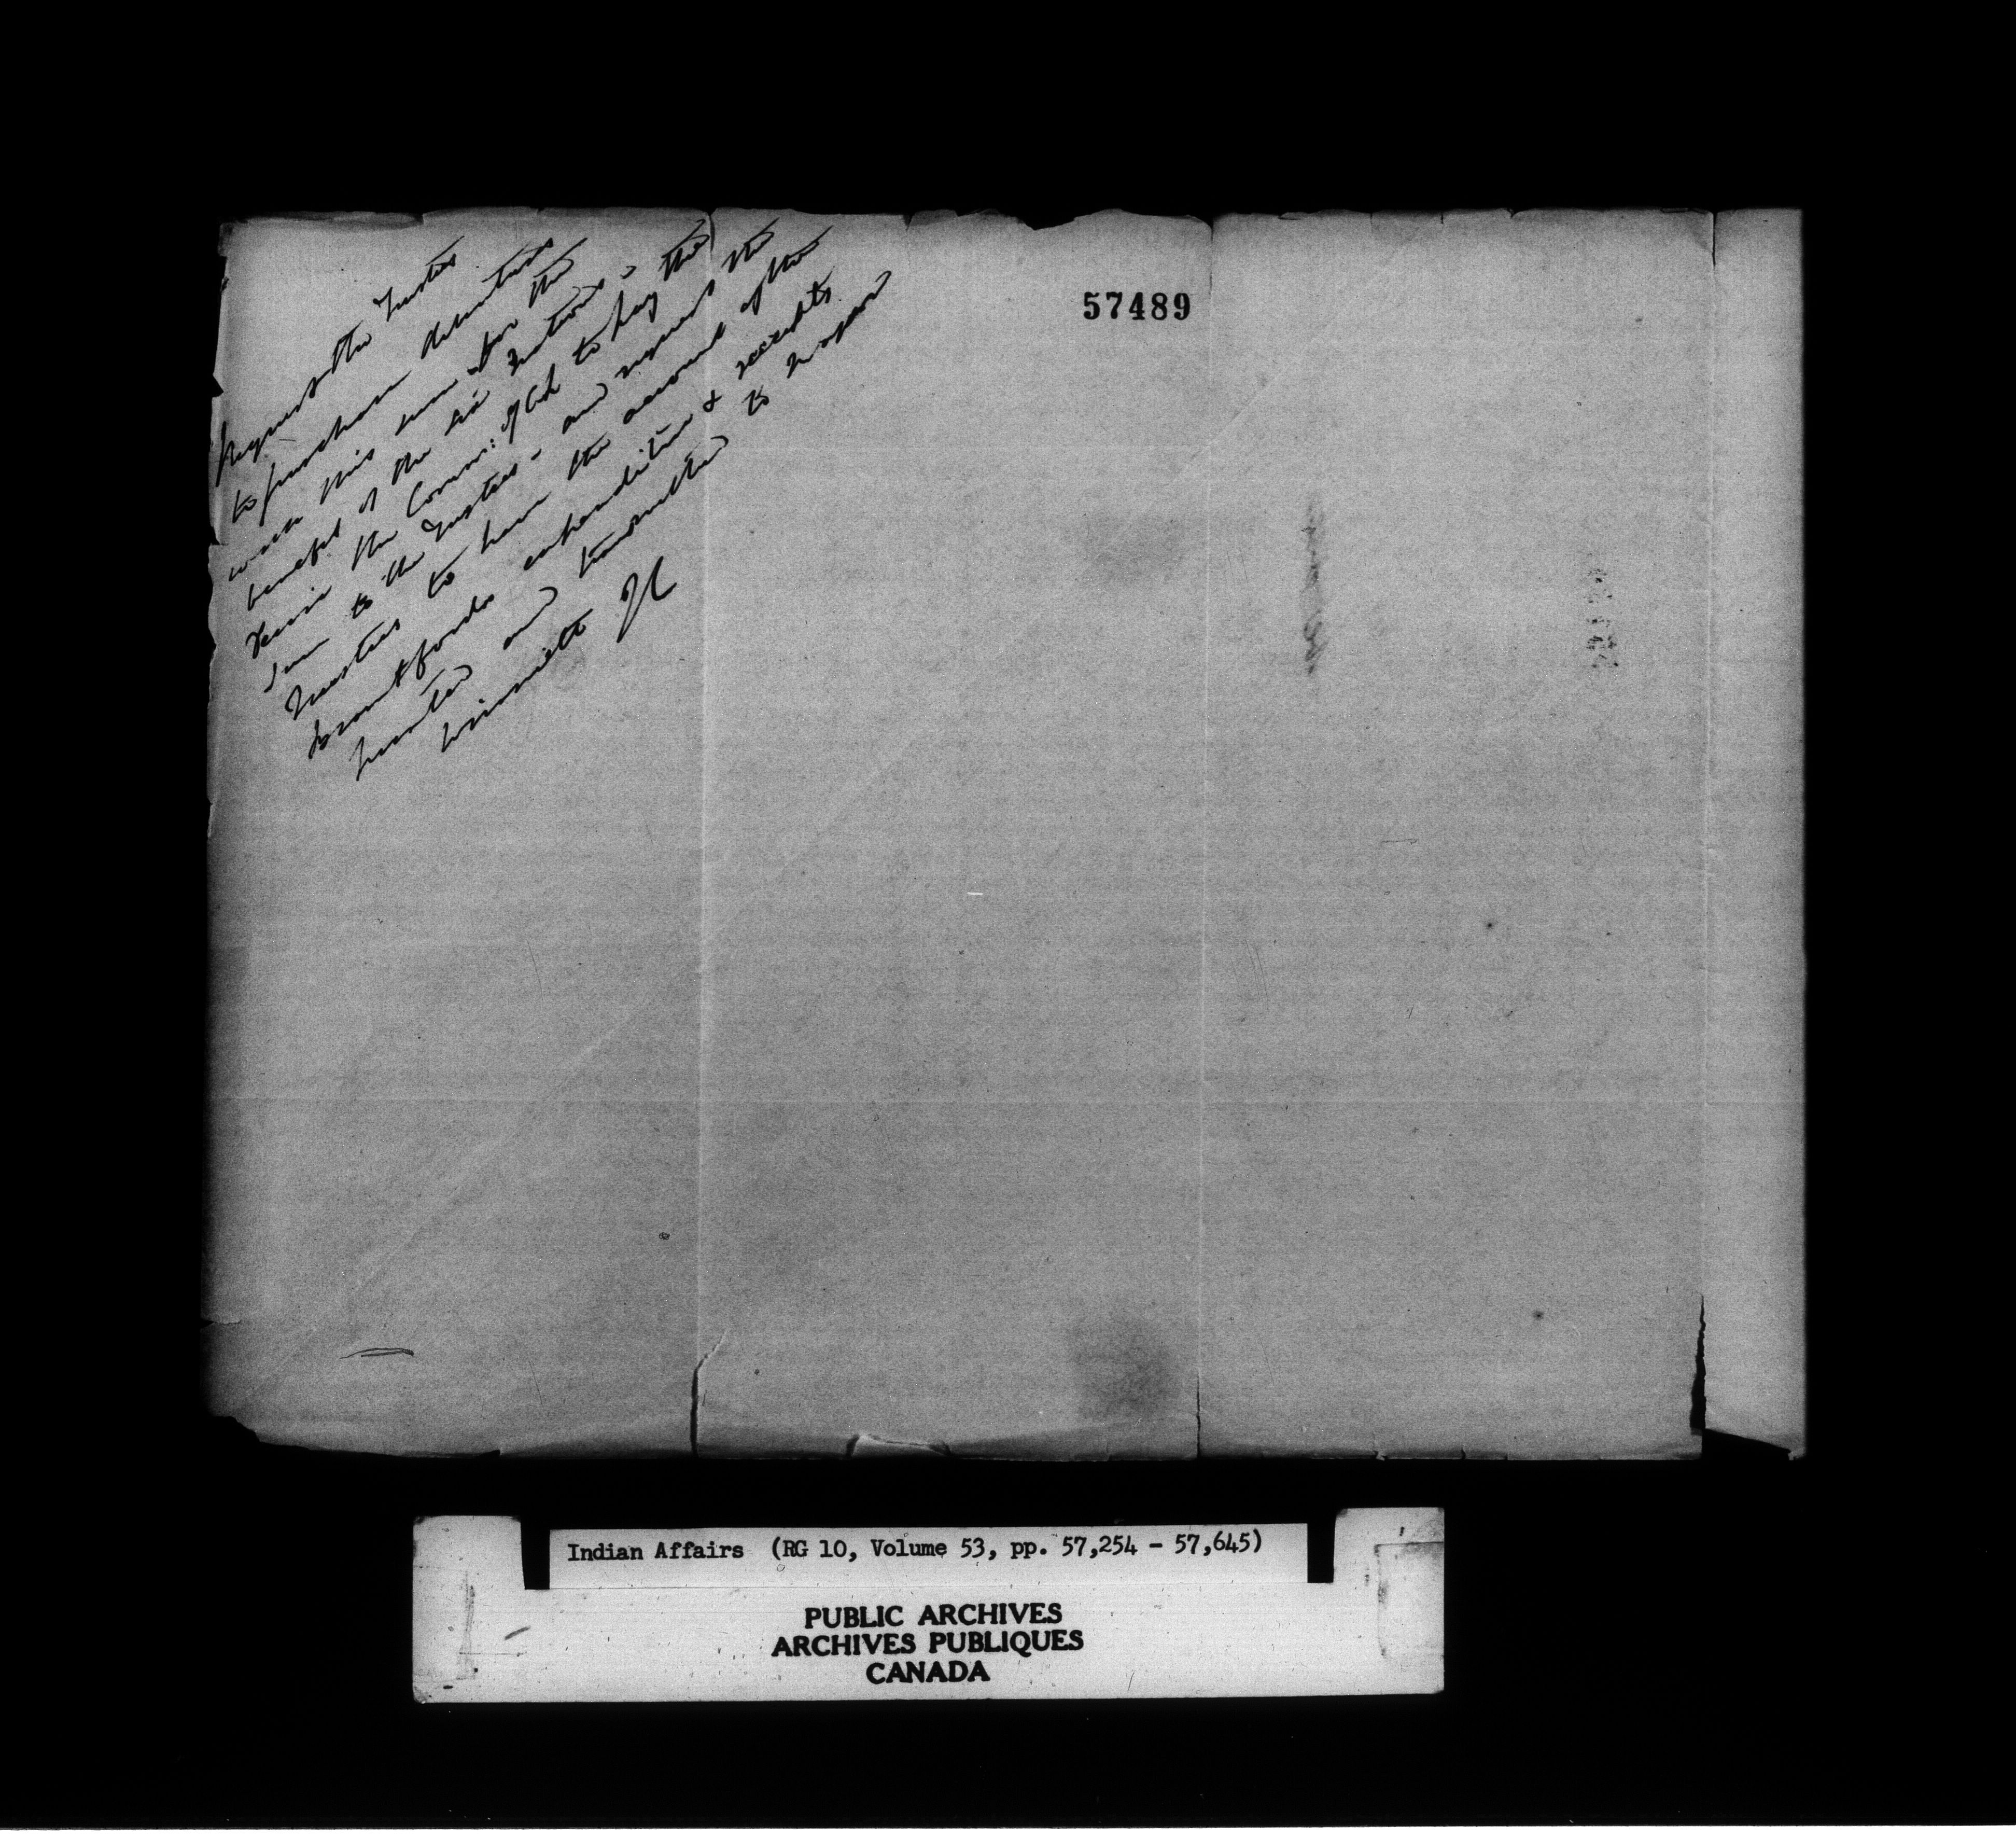 Request the Trustees
to purchase debentures
with this sum for the
benefit of the six Nations - the
desire the Comm: of Cd to pay the
sum to the Trustees - and request the
Trustees to have the account of the
Brantford expenditure & receipts
printed and transmitted to
57489
Indian Affairs (RG 10, Volume 53, pp. 57,254 - 57,645)
PUBLIC ARCHIVES
ARCHIVES PUBLIQUES
CANADA